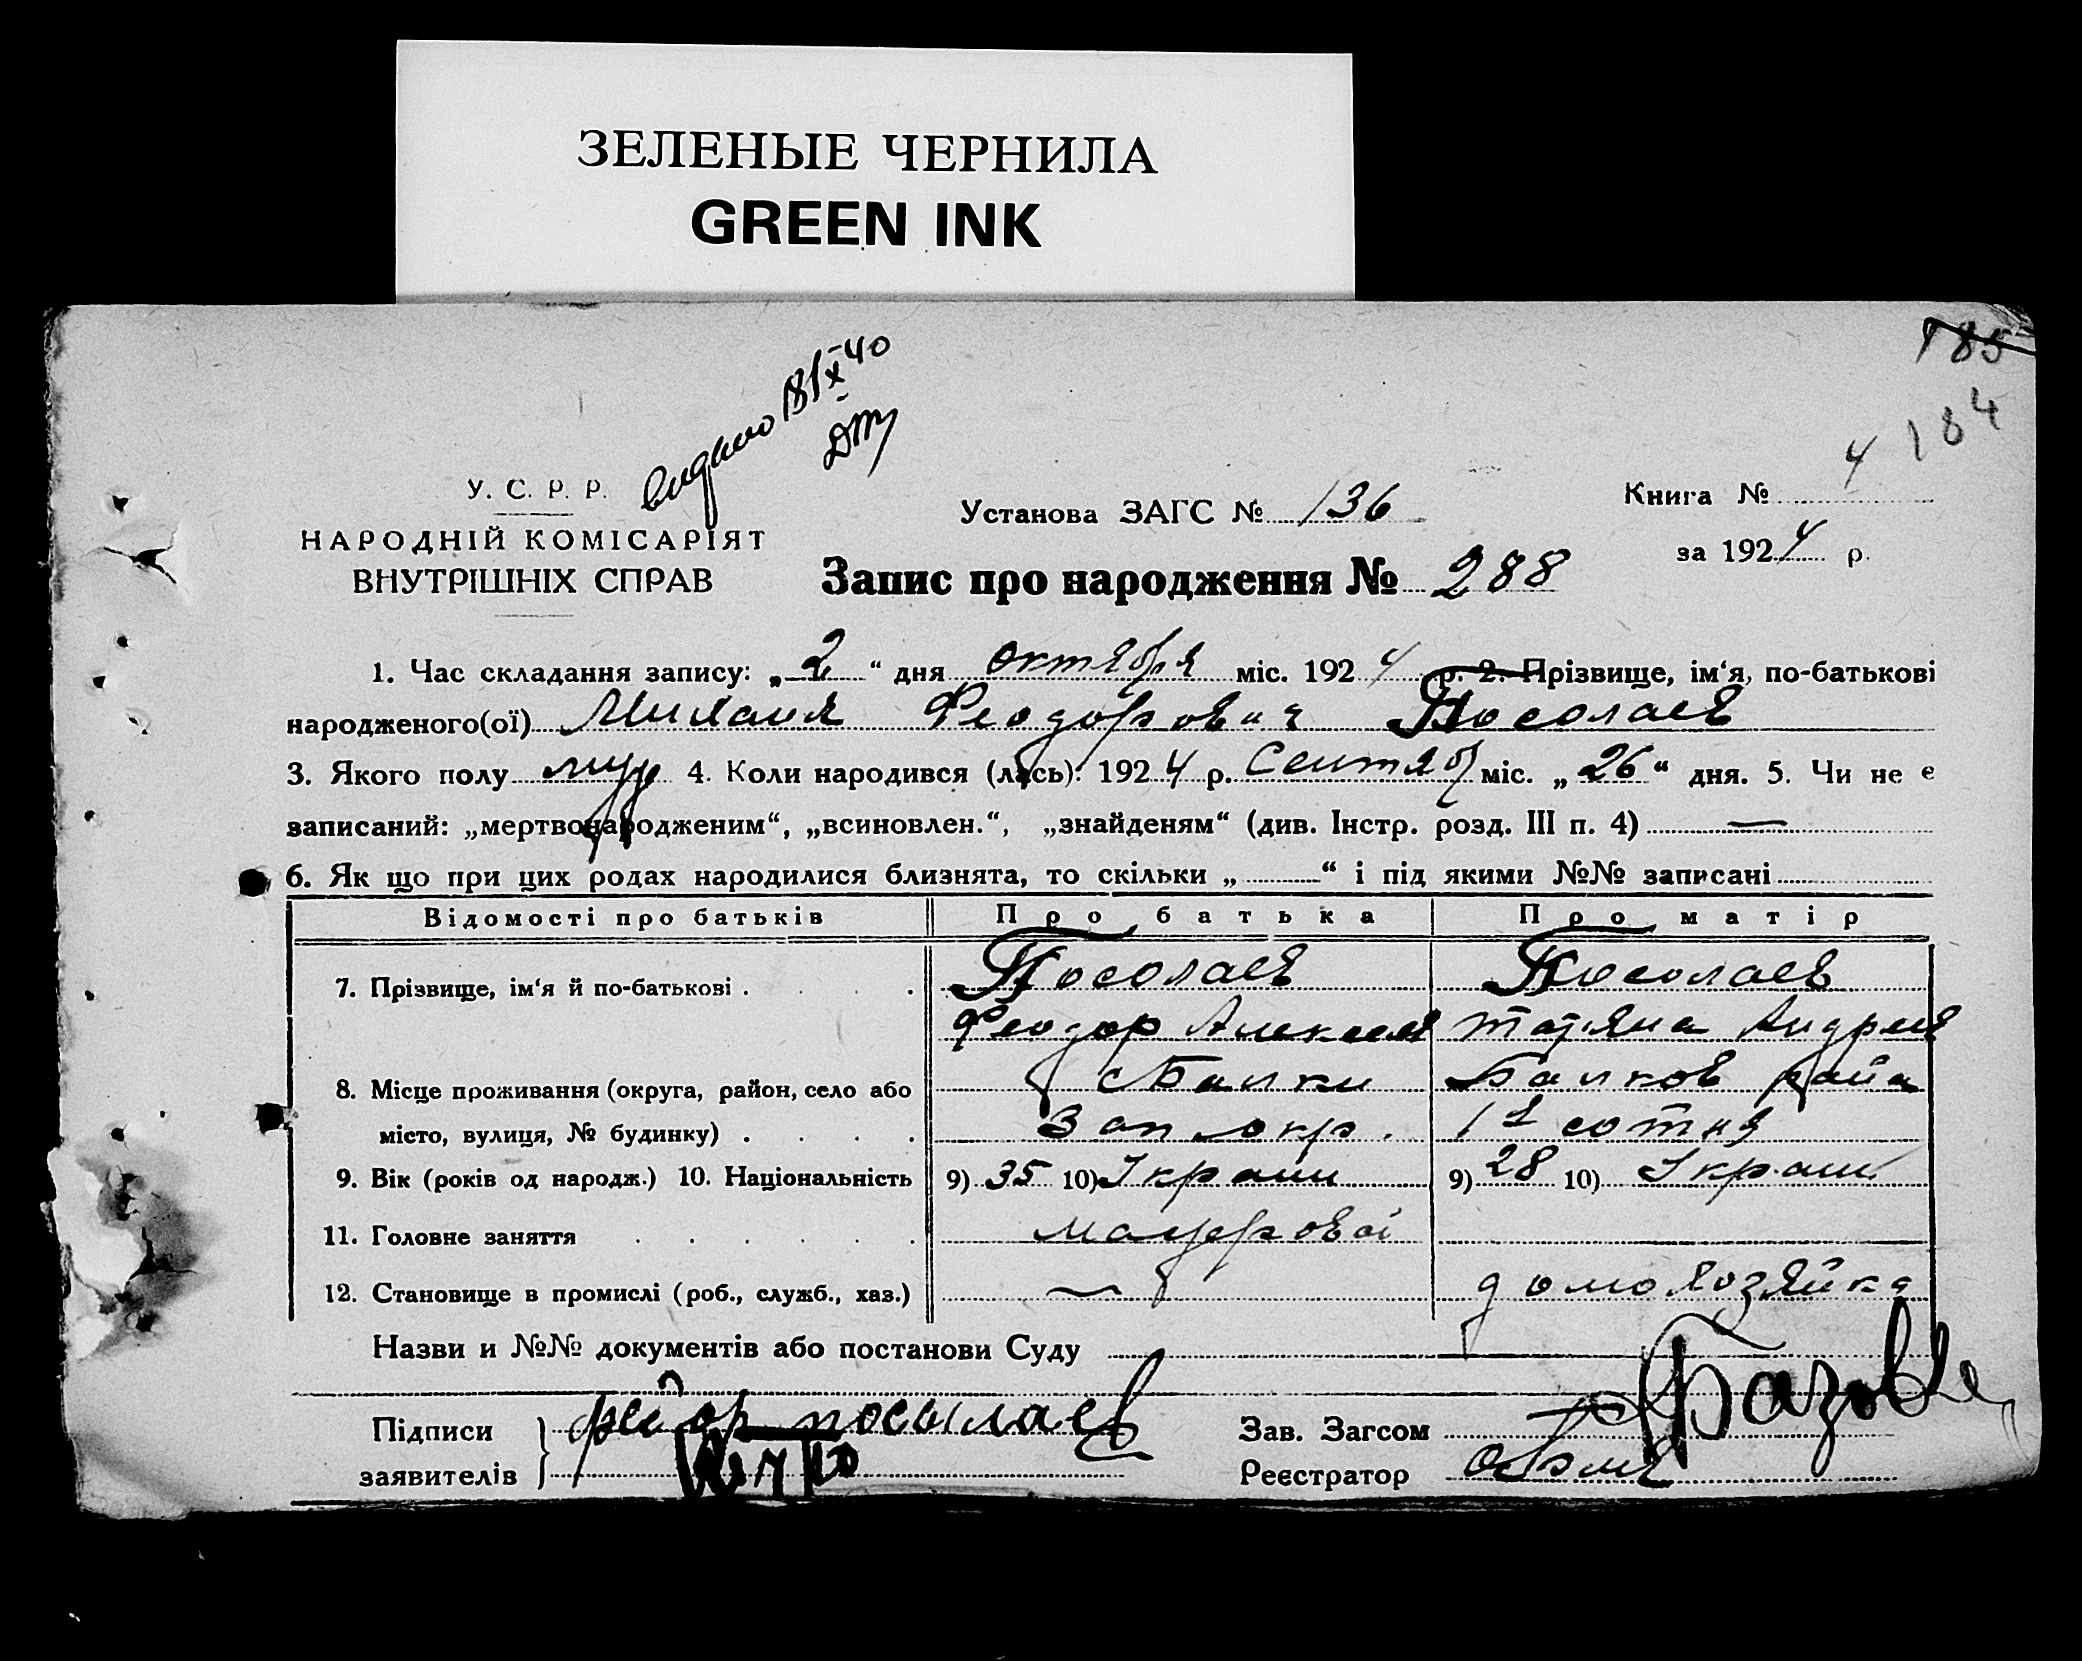 ЗЕЛЕНЫЕ ЧЕРНИЛА
GREEN INK
185
184
видано 18/X-40
У. С. Р. Р.
НАРОДНІЙ КОМІСАРІЯТ
ВНУТРІШНІХ СПРАВ
Установа ЗАГС № 136
Книга № 4
за 1924 р.
Запис про народження № 288
1. Час складання запису: „2“ дня октября міс. 1924 р. 2. Прізвище, ім‘я, по-батькові
народженого(ої) Михаил Феодорович Посолаев
3. Якого полу муж 4. Коли народився (лась): 1924 р. Сентяб міс. „26“ дня. 5. Чи не є
записаний: „мертвонародженим“, „всиновлен.“, „знайденям“ (див. Інстр. розд. III п. 4) —
6. Як що при цих родах народилися близнята, то скільки „ “ і під якими №№ записані
Відомості про батьків Про батька Про матір
7. Прізвище, ім‘я й по-батькові . Посолаев Посолаев
Феодор Алексеев Татяна Андрея
8. Місце проживання (округа, район, село або с Балки Балков райа
місто, вулиця, № будинку) . Зап окр. 1я сотня
9. Вік (років од народж.) 10. Національність 9) 35 10) Украин 9) 28 10) Украин
11. Головне заняття
12. Становище в промислі (роб., служб., хаз.) — домохозяйка
Назви и №№ документів або постанови Суду
Підписи посылаев Зав. Загсом
заявителів Реєстратор